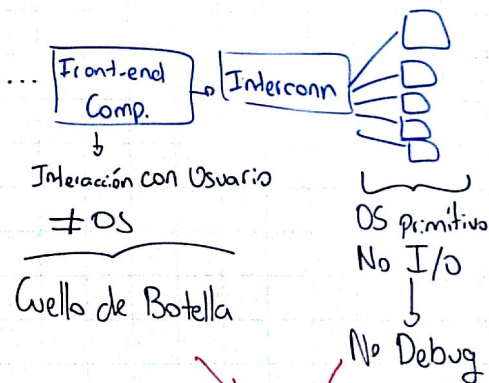 ...
Front-end
Comp.
Interconn
Interacción con Usuario
≠ OS
Cuello de Botella
OS primitivo
No I/O
No Debug